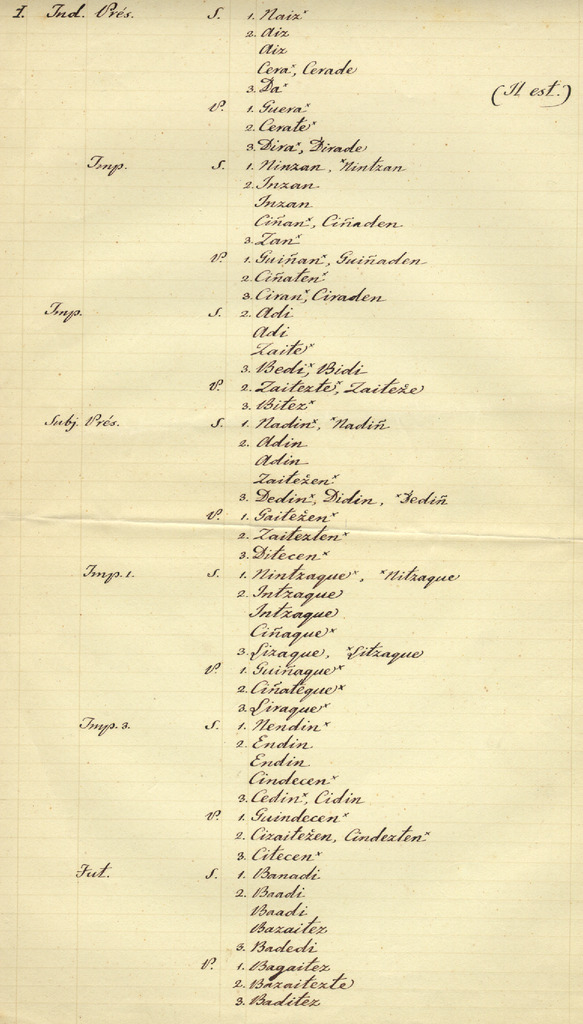 I. Ind. Prés. S. 1. Naiz×
2. Aiz
Aiz
Cera×, Cerade
3. Da× (Il est.)
P. 1. Guera×
2. Cerate×
3. Dira×, Dirade
Imp. S. 1. Ninzan, ×Nintzan
2. Inzan
Inzan
Ciñan×, Ciñaden
3. Zan×
P. 1. Guiñan×, Guiñaden
2. Ciñaten×
3. Ciran×, Ciraden
Imp. S. 2. Adi
Adi
Zaite×
3. Bedi×, Bidi
P. 2. Zaitezte×, Zaiteže
3. Bitez×
Subj. Prés. S. 1. Nadin×, ×Nadiñ
2. Adin
Adin
Zaitežen×
3. Dedin×, Didin, ×Dediñ
P. 1. Gaitežen×
2. Zaitezten×
3. Ditecen×
Imp. 1. S. 1. Nintzaque×, ×Nitzaque
2. Intzaque
Intzaque
Ciñaque×
3. Lizaque, ×Litzaque
P. 1. Guiñaque×
2. Ciñateque×
3. Liraque×
Imp. 3. S. 1. Nendin×
2. Endin
Endin
Cindecen×
3. Cedin×, Cidin
P. 1. Guindecen×
2. Cizaitežen, Cindezten×
3. Citecen×
Fut. S. 1. Banadi
2. Baadi
Baadi
Bazaitez
3. Badedi
P. 1. Bagaitez
2. Bazaitezte
3. Baditez